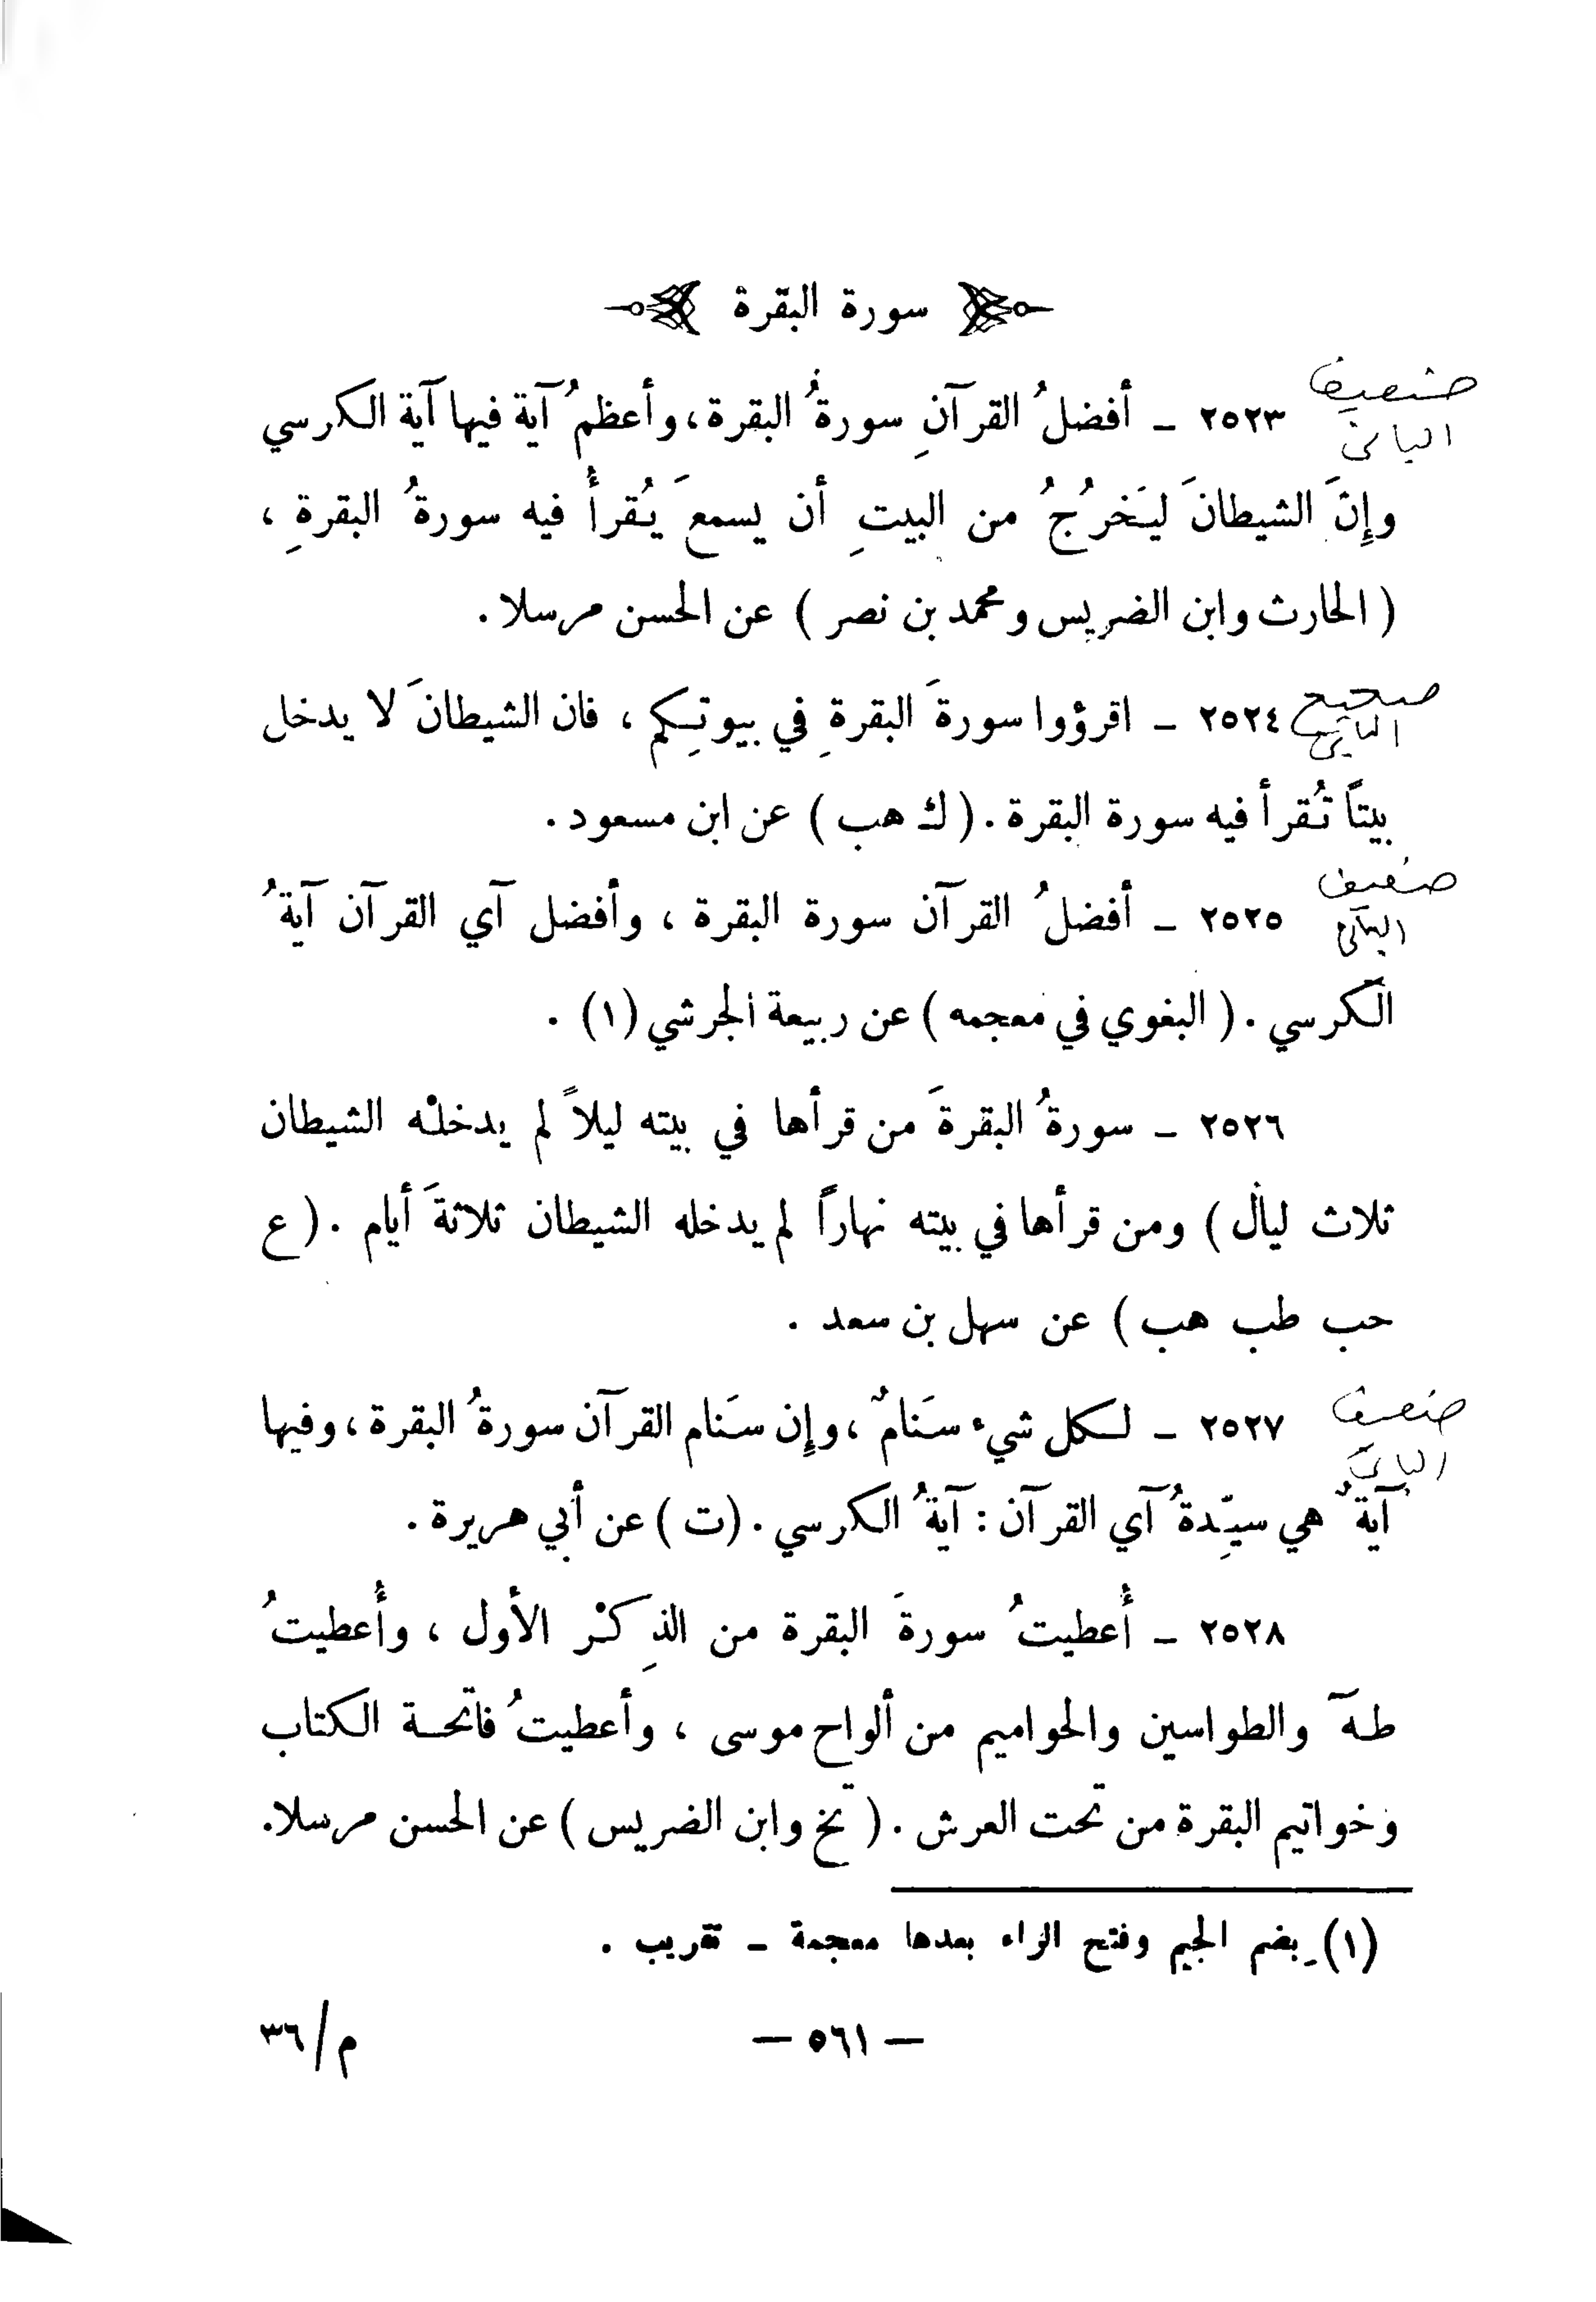 سورة البقرة
ضعيف
ألباني
٢٥٢٣ ـ أفضلُ القرآنِ سورةُ البقرة، وأعظمُ آية فيها آية الكرسي
وإِنَّ الشيطانَ ليَخرُجُ من البيتِ أن يسمعَ يُقرأُ فيه سورةُ البقرةِ ،
( الحارث وابن الضريس ومحمد بن نصر ) عن الحسن مرسلا .
صحيح
ألباني
٢٥٢٤ ـ اقرؤوا سورةَ البقرةِ في بيوتِكم ، فان الشيطانَ لا يدخل
بيتاً تُقرأ فيه سورة البقرة . ( ك هب ) عن ابن مسعود .
ضعيف
ألباني
٢٥٢٥ ـ أفضلُ القرآن سورة البقرة ، وأفضل آي القرآن آيةُ
الكرسي . ( البغوي في معجمه ) عن ربيعة الجرشي (١) .
٢٥٢٦ ـ سورةُ البقرةَ من قرأها في بيته ليلاً لم يدخلْه الشيطان
ثلاث ليال ) ومن قرأها في بيته نهاراً لم يدخله الشيطان ثلاثةَ أيام . ( ع
حب طب هب ) عن سهل بن سعد .
ضعيف
ألباني
٢٥٢٧ ـ لكل شيء سَنامٌ ، وإِن سَنام القرآن سورةُ البقرة ، وفيها
آيةٌ هي سيِّدةُ آي القرآن : آيةُ الكرسي . (ت ) عن أبي هريرة .
٢٥٢٨ ـ أُعطيتُ سورةَ البقرة من الذِكْر الأول ، وأُعطيتُ
طهَ والطواسين والحواميم من ألواح موسى ، وأعطيتُ فاتحة الكتاب
وخواتيم البقرة من تحت العرش . ( تخ وابن الضريس ) عن الحسن مرسلا.
(١) بضم الجيم وفتح الراء بعدها معجمة ـ تقريب .
— ٥٦١ —
م/٣٦